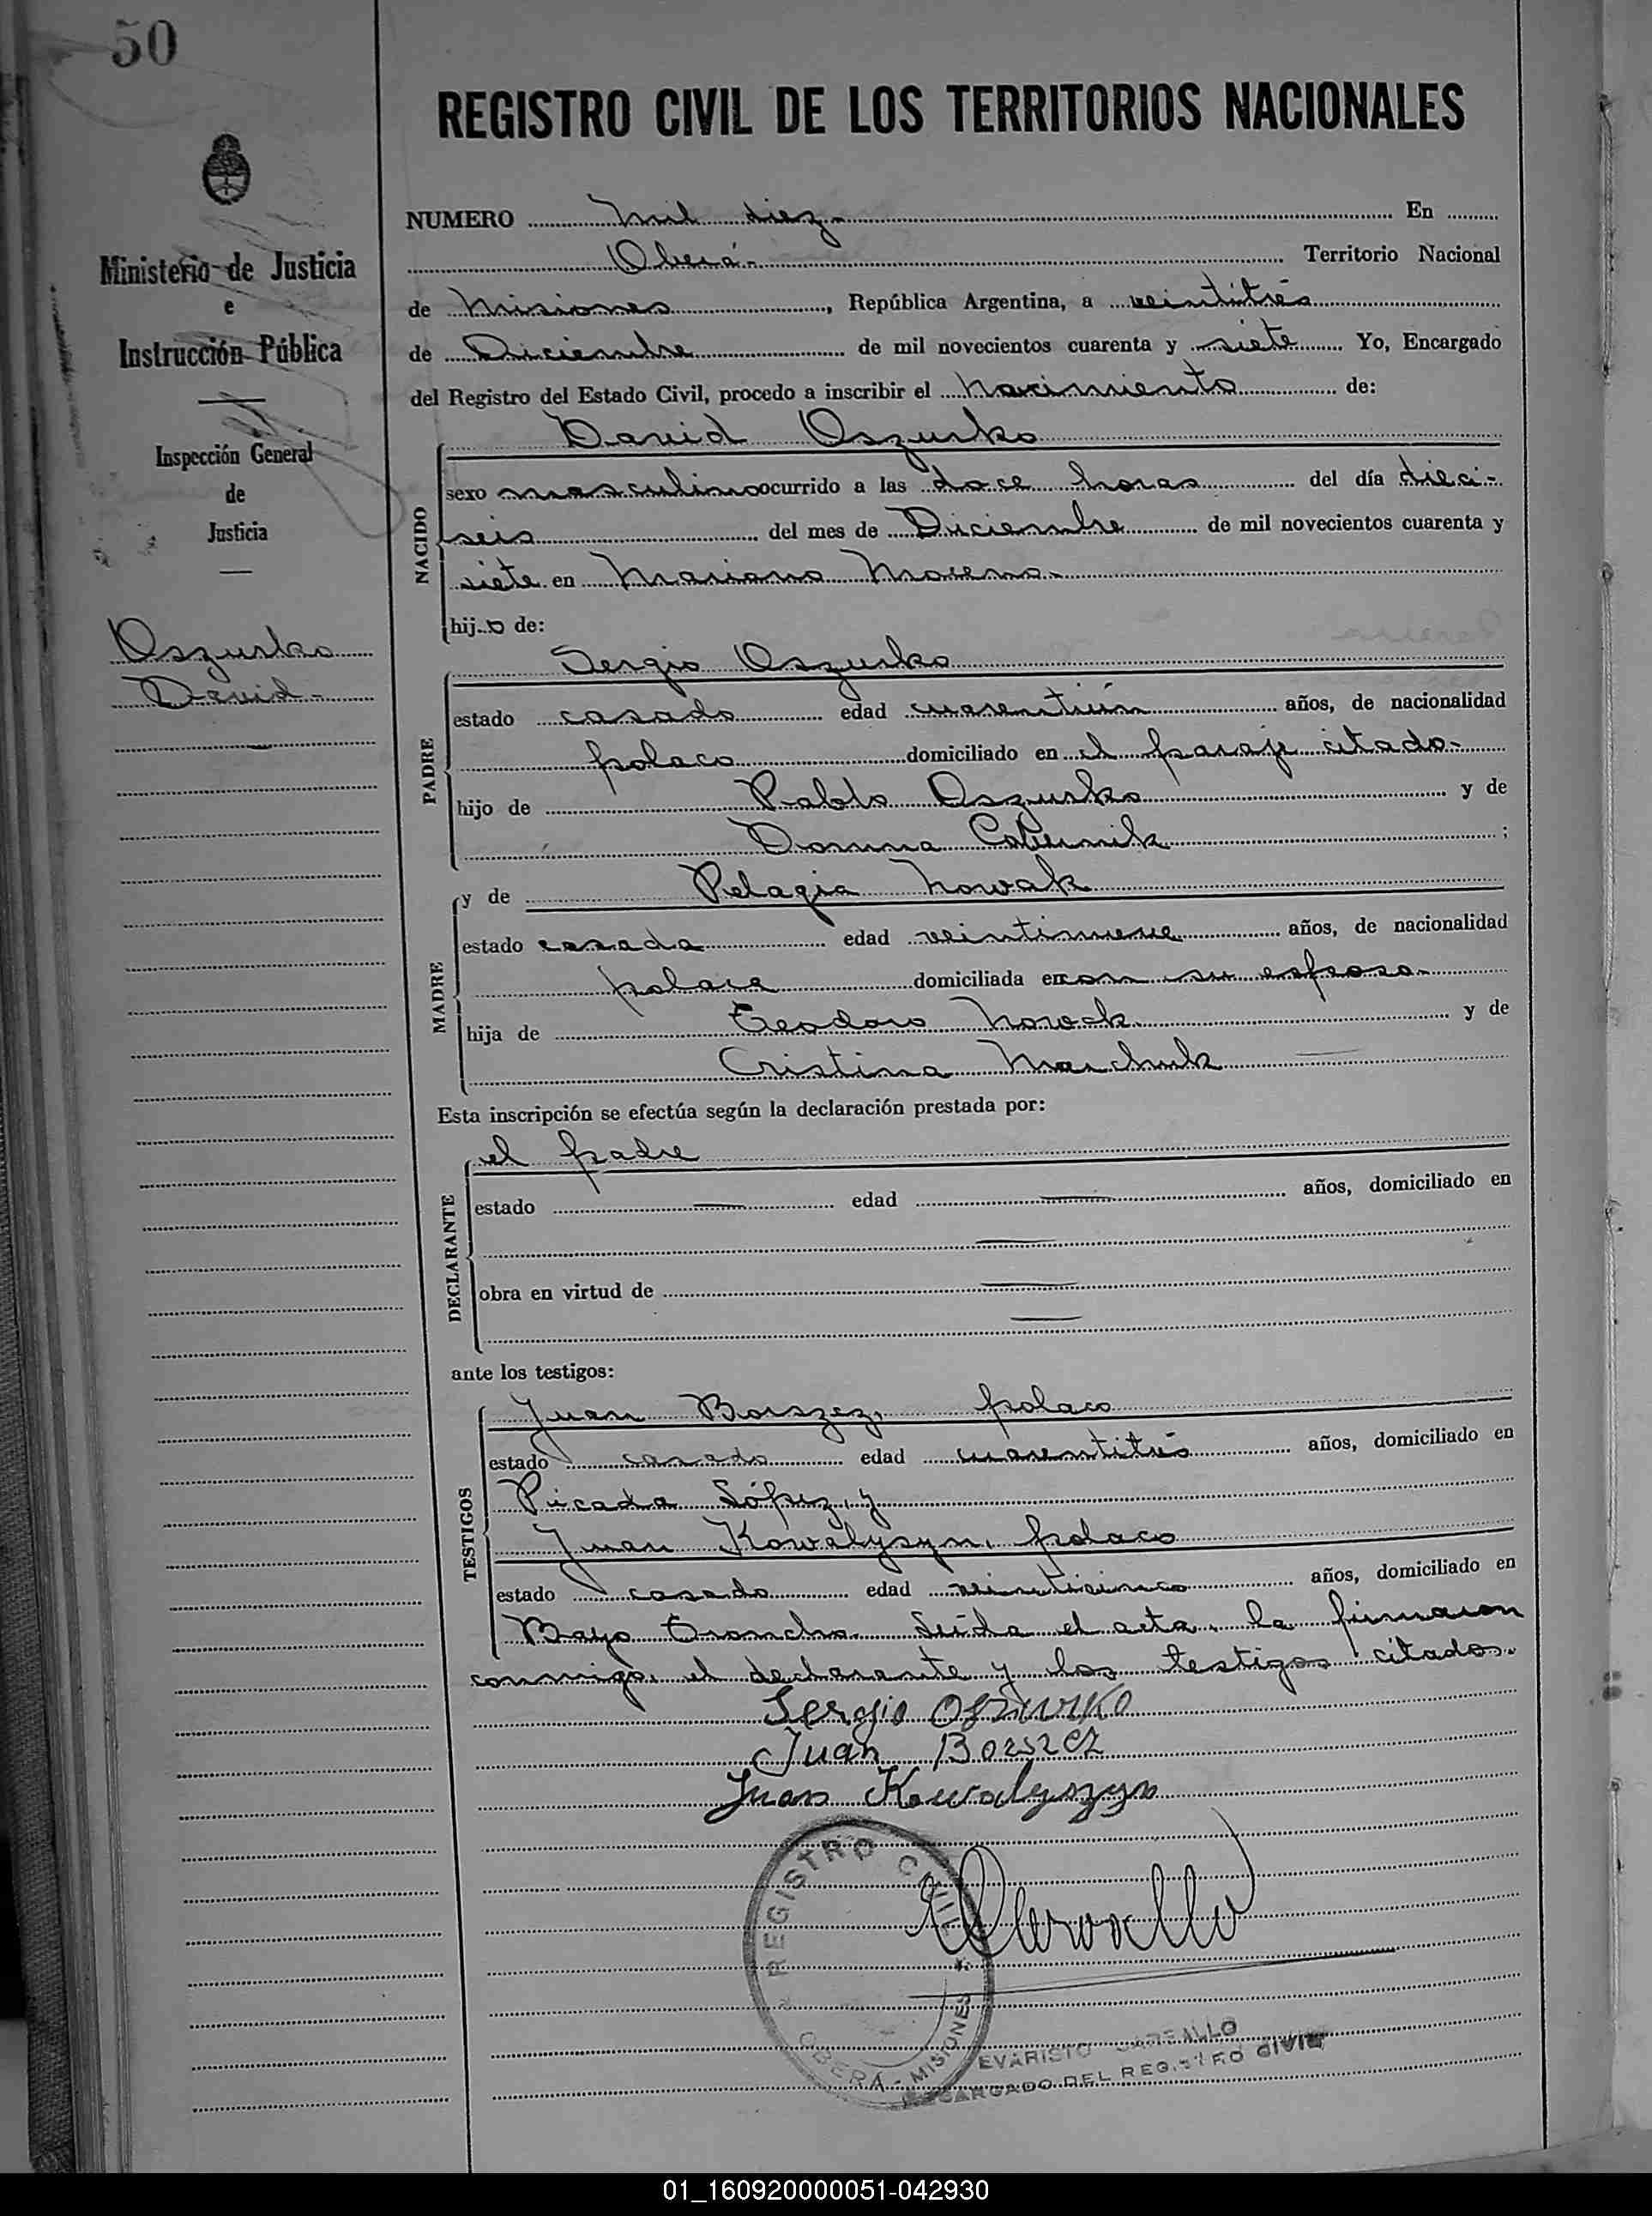 50
REGISTRO CIVIL DE LOS TERRITORIOS NACIONALES
Ministerio de Justicia
e
Instrucción Pública
Inspección General
de
Justicia
Oszurko
David -
NUMERO mil diez - En
Oberá - Territorio Nacional
de Misiones, República Argentina, a veintitrés
de Diciembre de mil novecientos cuarenta y siete Yo, Encargado
del Registro del Estado Civil, procedo a inscribir el nacimiento de:
David Oszurko
NACIDO
sexo masculino ocurrido a las doce horas del día dieci-
seis del mes de Diciembre de mil novecientos cuarenta y
siete en Mariano Moreno -
hijo de:
Sergio Oszurko
PADRE
estado casado edad cuarentiún años, de nacionalidad
polaco domiciliado en el paraje citado -
hijo de Pablo Oszurko y de
Domna ;
MADRE
y de Pelagia Nowak
estado casada edad veintinueve años, de nacionalidad
polaca domiciliada en con su esposo -
hija de Teodoro Nowak y de
Cristina Marchuk
Esta inscripción se efectúa según la declaración prestada por:
el padre
DECLARANTE
estado — edad — años, domiciliado en
—
obra en virtud de —
—
ante los testigos:
TESTIGOS
Juan Borszez, polaco
estado casado edad cuarentitrés años, domiciliado en
Picada López, y
Juan Kowalyszyn, polaco
estado casado edad veinticinco años, domiciliado en
Bayo Troncho. Leida el acta, la firmaron
conmigo, el declarante y los testigos citados.
Sergio Oszurko
Juan Borszez
Juan Kowalyszyn
REGISTRO CIVIL
OBERA - MISIONES
EVARISTO
ENCARGADO DEL REGISTRO CIVIL
01_160920000051-042930